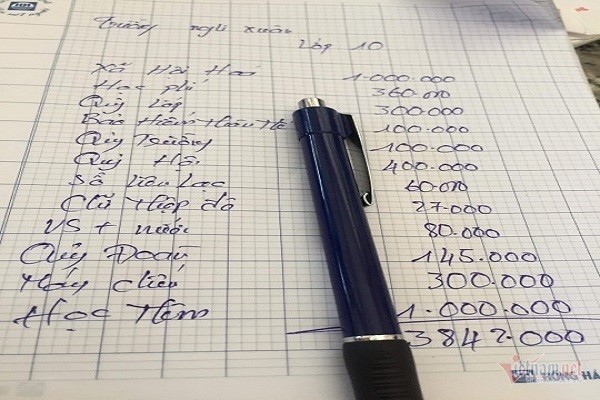 Trường nghi xuân
lớp 10
Xã Hội Hoá 1.000.000
Học phí 360.000
Quỹ lớp 300.000
Bảo Hiểm Thân Thể 100.000
Quỹ Trường 100.000
Quỹ Hội 400.000
Sổ liên lạc 60.000
27.000
VS + nước 80.000
Quỹ Đoàn 145.000
Máy chiếu 300.000
Học thêm 1.000.000
3842.000
vietnamnet
HONG HA